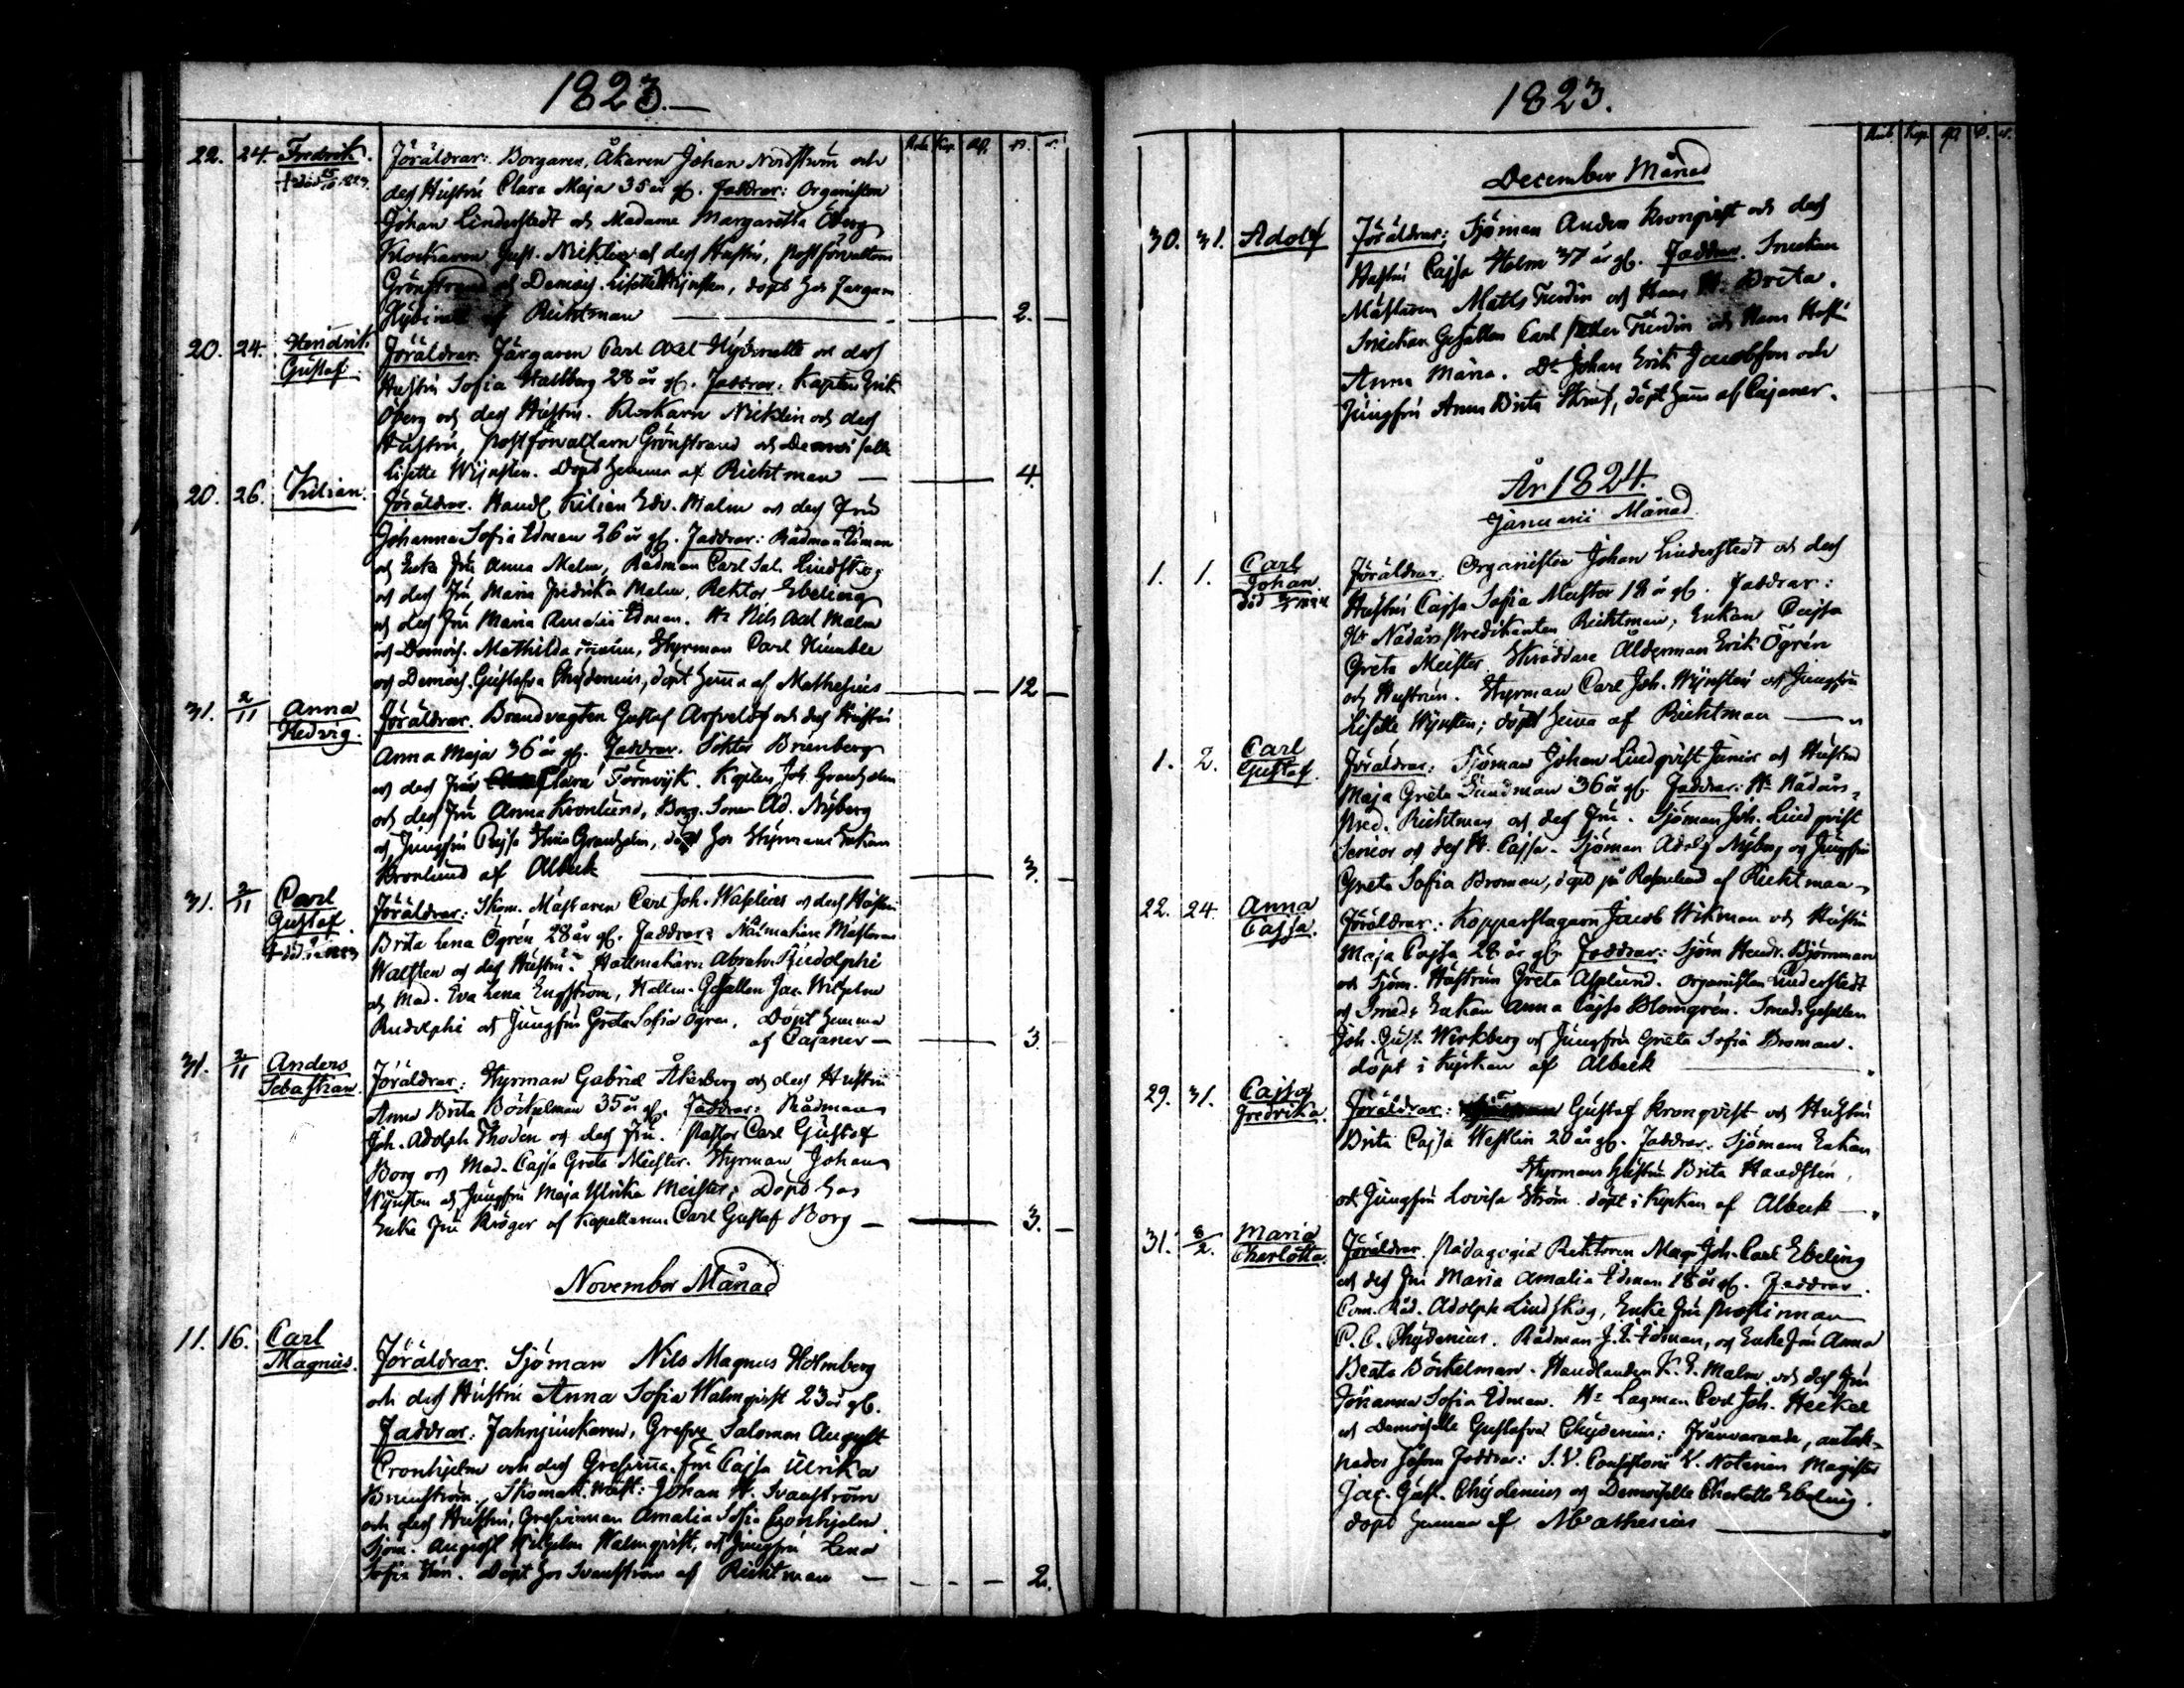 1823.
22. 24. Fredrik. Föräldrar: Borgaren, Åkaren Johan Nordström och
† död 1823. dess Hustru Clara Maja 35 år gl. Faddrar: Organisten
Johan Linderstedt och Madame Margaretha Öberg
Klockaren Gust. Nicklin och dess Hustru, Postförvaltaren
Grönstrand och Demois. Lisette Wijnsten, döpt hos Färgaren
af Richtman 2.
20. 24. Hendrik Gustaf. Föräldrar: Färgaren Carl Axel och dess
Hustru Sofia Hallberg 28 år gl. Faddrar. Kapten Erik
Öberg och dess Hustru. Klockarn Nicklin och dess
Hustru, Postförvaltarn Grönstrand och Demoiselle
Lisette Wijnsten. Döpt hemma af Richtman 4.
20. 26. Kilian. Föräldrar. Handl. Kilian Edv. Malm och dess Fru
Johanna Sofia Edman 26 år gl. Faddrar: Rådman Edman
och Enke Fru Anna Malm, Rådman Carl Sal. Lindskog
och dess Fru Maria Fredrika Malm, Rektor Ebeling
och dess Fru Maria Amalia Edman. Hr Nils Axel Malm
och Demois. Mathilda Styrman Carl Humble
och Demois. Gustafva Chydenius, döpt hemma af Mathesius 12
31. 2/11 Anna Hedvig. Föräldrar. Brandvagten Gustaf Arfvelof och dess Hustru
Anna Maja 36 år gl. Faddrar. Doktor Brunberg
och dess Fru Clara Törnvijk. Kapten Joh. Granholm
och dess Fru Anna Kronlund, Borg. Sonen Ad. Nyberg
och Jungfru Cajsa Granholm, döpt hos Styrmans Enkan
Kronlund af Albeck 3.
31. 2/11 Carl Gustaf. Föräldrar: Skom. Mästaren Carl Joh. Waselius och dess Hustru
† död 1823 Brita Lena Ögrén 28 år gl. Faddrar: Mästaren
Walsten och dess Hustru. Hattmakarn Abrah. Rudolphi
och Mad. Eva Lena Engström, Hattm. Gesällen Jac. Wilhelm
Rudolphi och Jungfru Greta Sofia Ögren. Döpt hemma
af Cajaner 3.
31. 2/11 Anders Sebastian. Föräldrar: Styrman Gabriel Åkerberg och dess Hustru
Anna Brita Böckelman 35 år gl. Faddrar: Rådman
Joh. Adolph Thodén och dess Fru. Pastor Carl Gustaf
Borg och Mad. Cajsa Greta Meister. Styrman Johan
Wijnsten och Jungfru Maja Ulrika Meister; Döpt hos
Enke Fru Kröger af Kapellanen Carl Gustaf Borg 3.
November Månad
11. 16. Carl Magnus. Föräldrar. Sjöman Nils Magnus Holmberg
och dess Hustru Anna Sofia Walmqvist 23 år gl.
Faddrar: Fahnjunkaren, Grefve Salomon August
Cronhjelm och dess Grefvinna Fru Cajsa Ulrika
Brunström, Skomak. mäst: Johan H. Svanström
och dess Hustru, Grefvinnan Amalia Sofia Cronhjelm.
Sjöm. August Wilhelm Walmqvist, och Jungfru Lena
Sofia Döpt hos Svanström af Richtman 2.
1823.
December Månad
30. 31. Adolf Föräldrar; Sjöman Anders Kronqvist och dess
Hustru Cajsa Holm 37 år gl. Faddrar. Snickare
Mästaren Matts Turdin och Hans H: Brita.
Snickare Gesällen Carl Peter Turdin och Hans Hustru
Anna Maria. Do Johan Erik Jacobsson och
Jungfru Anna Brita döpt hemma af Cajaner.
År 1824.
Januarii Månad.
1. 1. Carl Johan Föräldrar: Organisten Johan Linderstedt och dess
död Hustru Cajsa Sofia Meister 18 år gl. Faddrar:
Hr Nådårs Predikanten Richtman; Enkan Cajsa
Greta Meister. Skräddare Ålderman Erik Ögrén
och Hustrun. Styrman Carl Joh. Wijnstén och Jungfru
Lisette Wijnsten; döpt hemma af Richtman
1. 2. Carl Gustaf. Föräldrar: Sjöman Johan Lindqvist Junior och Hustrun
Maja Greta Sundman 36 år gl. Faddrar: Hr Nådårs-
Pred. Richtman och dess Fru. Sjöman Joh. Lindqvist
Senior och dess H. Cajsa. Sjöman Adolf Nyberg och Jungfru
Greta Sofia Broman, döpt på af Richtman
22. 24. Anna Cajsa. Föräldrar: Kopparslagarn Jacob Wikman och Hustru
Maja Cajsa 28 år gl. Faddrar: Sjöm Hendr. Björnman
och Sjöm. Hustrun Greta Asplund. Organisten Linderstedt
och Smeds Enkan Anna Cajsa Blomgrén. Smeds gesällen
Joh. Gust. Wirkberg och Jungfru Greta Sofia Broman.
döpt i Kyrkan af Albeck
29. 31. Cajsa Fredrika. Föräldrar: Gustaf Kronqvist och Hustru
Brita Cajsa Westlin 20 år gl. Faddrar. Sjömans Enkan
Styrmans hustru Brita Handsten,
och Jungfru Lovisa Ström. döpt i Kyrkan af Albeck
31. 8/2. Maria Charlotta. Föräldrar. Pädagogiæ Rektoren Mag. Joh. Carl Ebeling
och dess Fru Maria Amalia Edman 18 år gl. Faddrar.
Com. Råd. Adolph Lindskog, Enke Fru Prostinnan
C. C. Chydenius. Rådman J. E. Edman, och Enke Fru Anna
Beata Böckelman. Handlanden K. E. Malm och dess Fru
Johanna Sofia Edman. Hr Lagman Carl Joh. Heikel
och Demoiselle Gustafva Chydenius; Frånvarande, anteck-
nades såsom Faddrar: Notarien Magister
Jac. Gust. Chydenius och Demoiselle Charlotta Ebeling.
döpt hemma af Mathesius